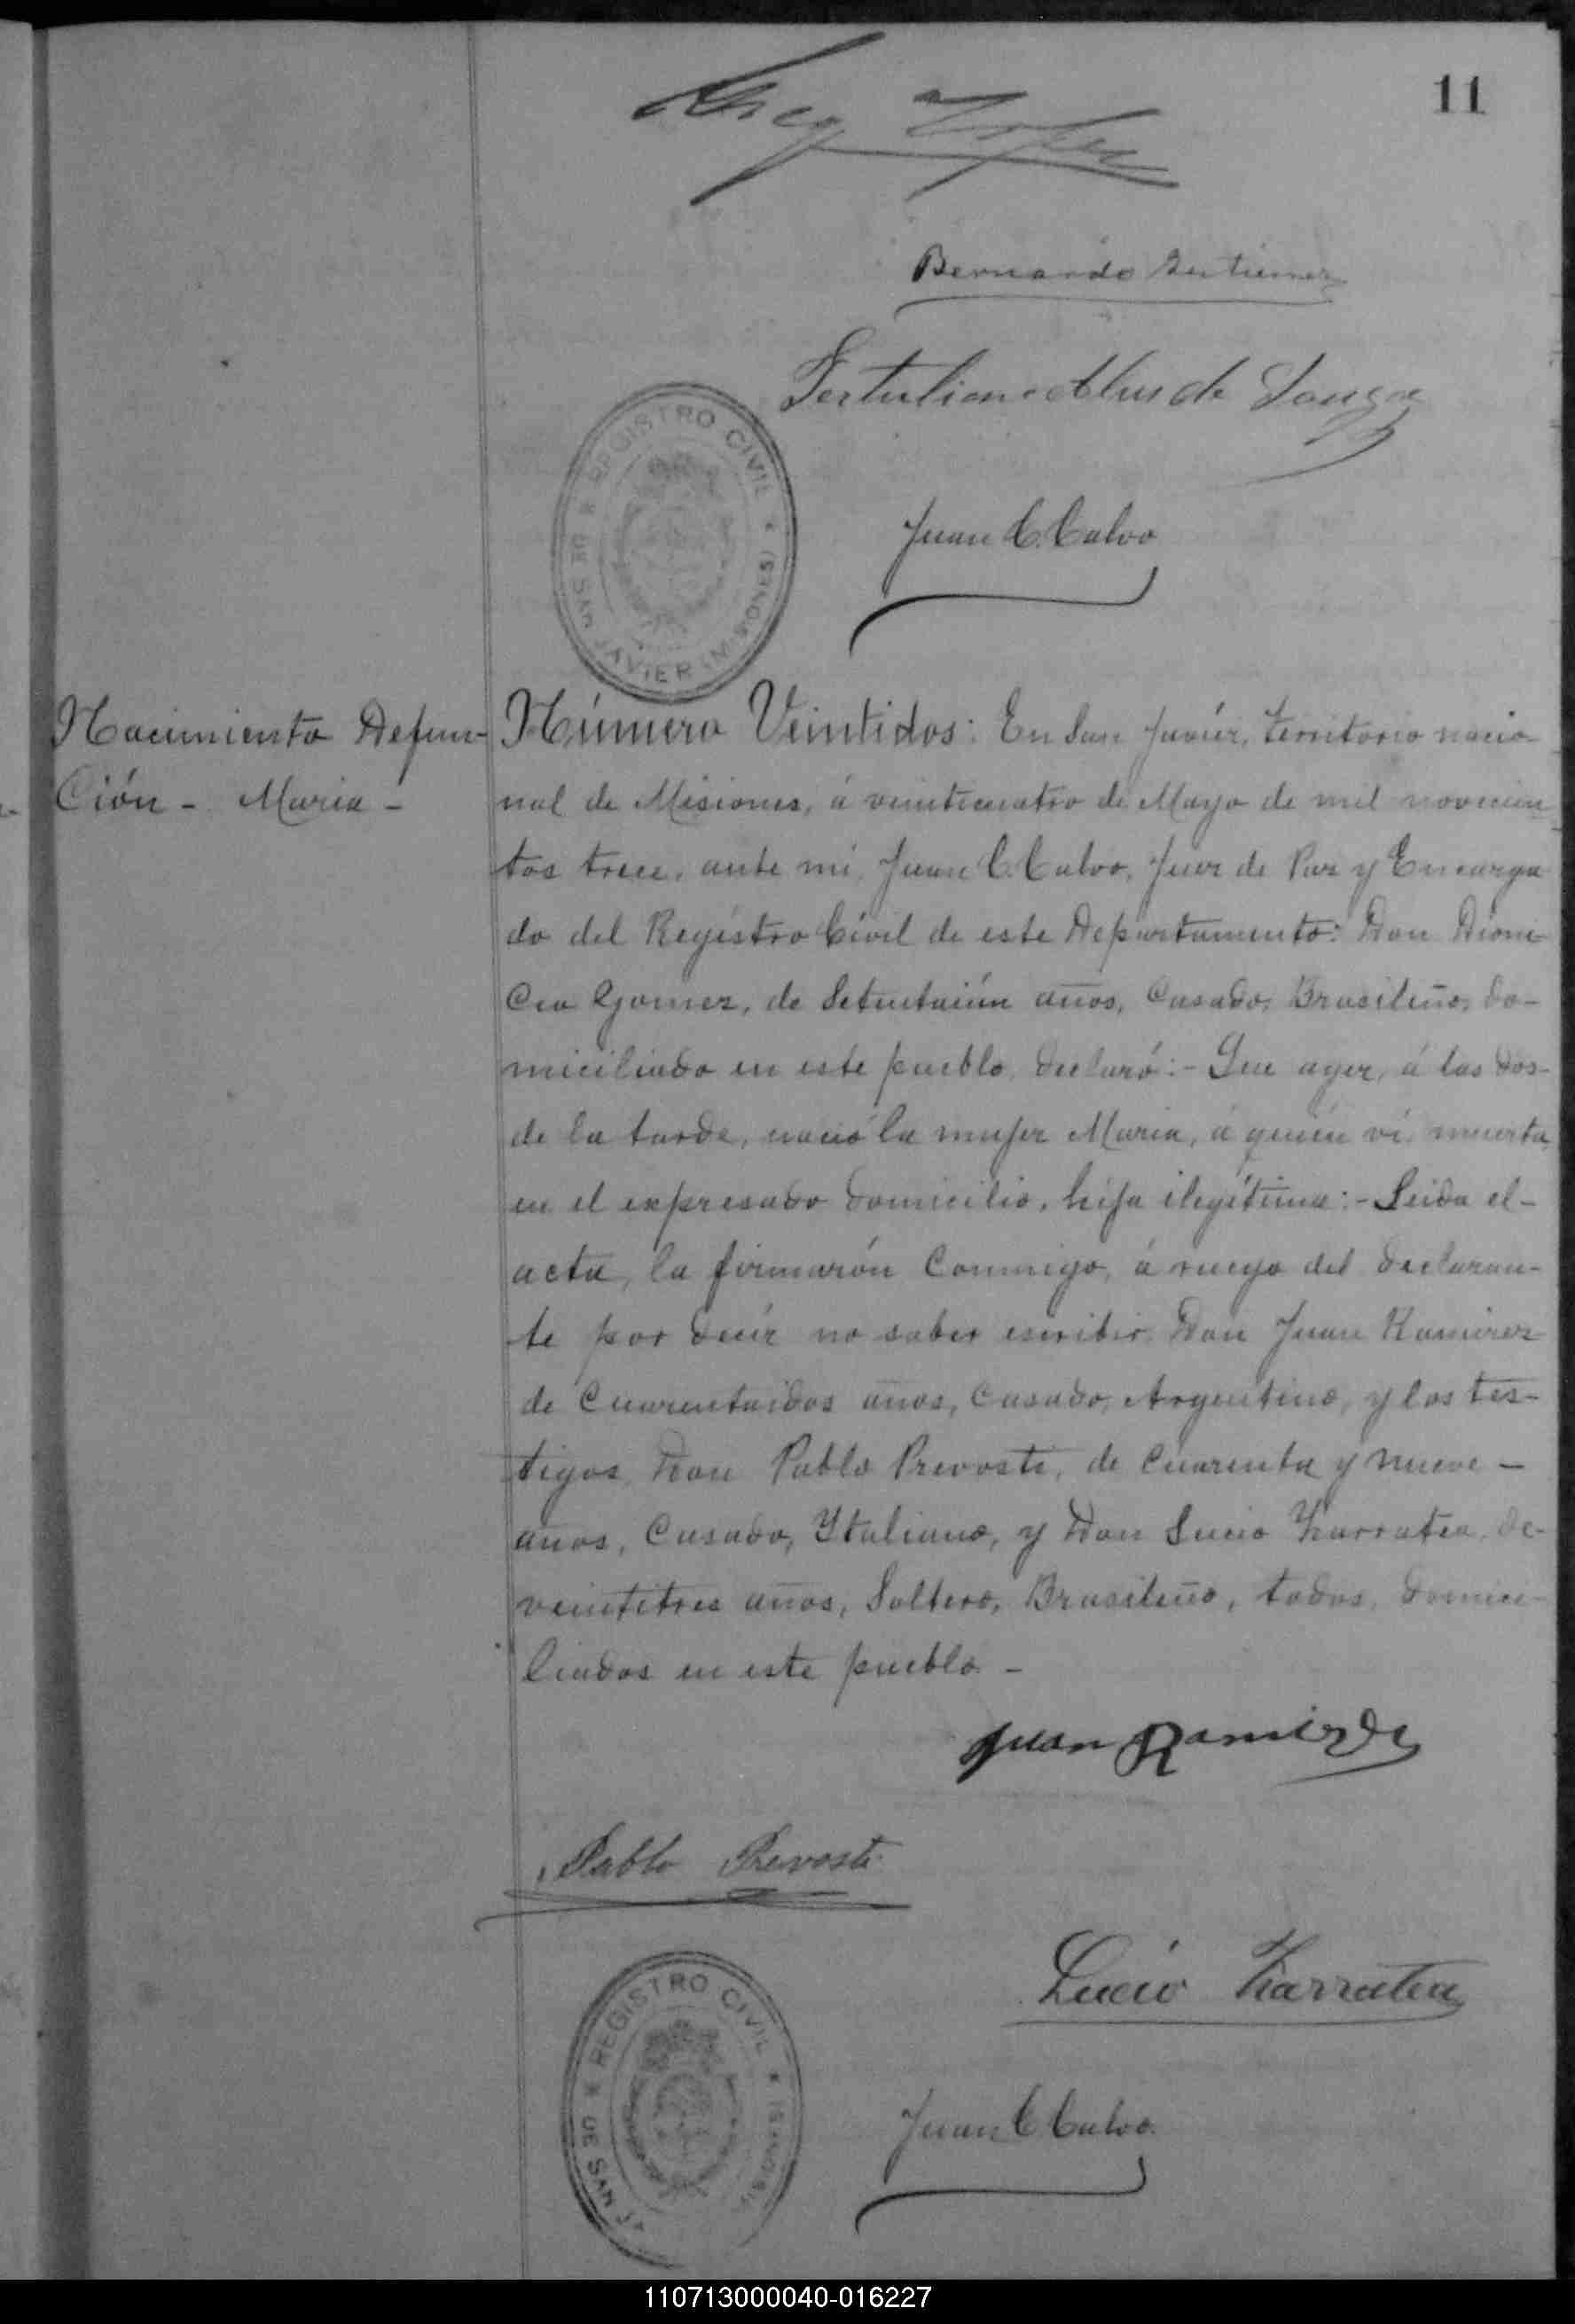 11
Bernardo Gutierrez
Tertuliano Alves de Souza
REGISTRO CIVIL
DE SAN JAVIER (MISIONES)
Juan C. Calvo
Nacimiento Defun-
ción - Maria -
Número Veintidos: En San Javiér, territorio nacio-
nal de Misiones, á veinticuatro de Mayo de mil novecien
tos trece, ante mi, Juan C. Calvo, Juez de Paz y Encarga
do del Registro Civil de este Departamento: Don Dioni-
cio Gomez, de Setentaiún años, Casado, Brasileño, do-
miciliado en este pueblo, declaró:- Que ayer, á las dos-
de la tarde, nació la mujer Maria, á quién ví muerta
en el expresado domicilio, hija ilegítima:- Leida el-
acta, la firmarón conmigo, á ruego del declaran-
te por decír no saber escribir Don Juan Ramirez
de Cuarentaidos años, Casado, Argentino, y los tes-
tigos, Don Pablo Prevosti, de Cuarenta y nueve -
años, Casado, Ytaliano, y Don Lucio Zarratea, de-
veintitres años, Soltero, Brasileño, todos, domici-
liados en este pueblo. -
Juan Ramirez
Pablo Prevosti
Lucio Zarratea
REGISTRO CIVIL
DE SAN
Juan C Calvo
110713000040-016227